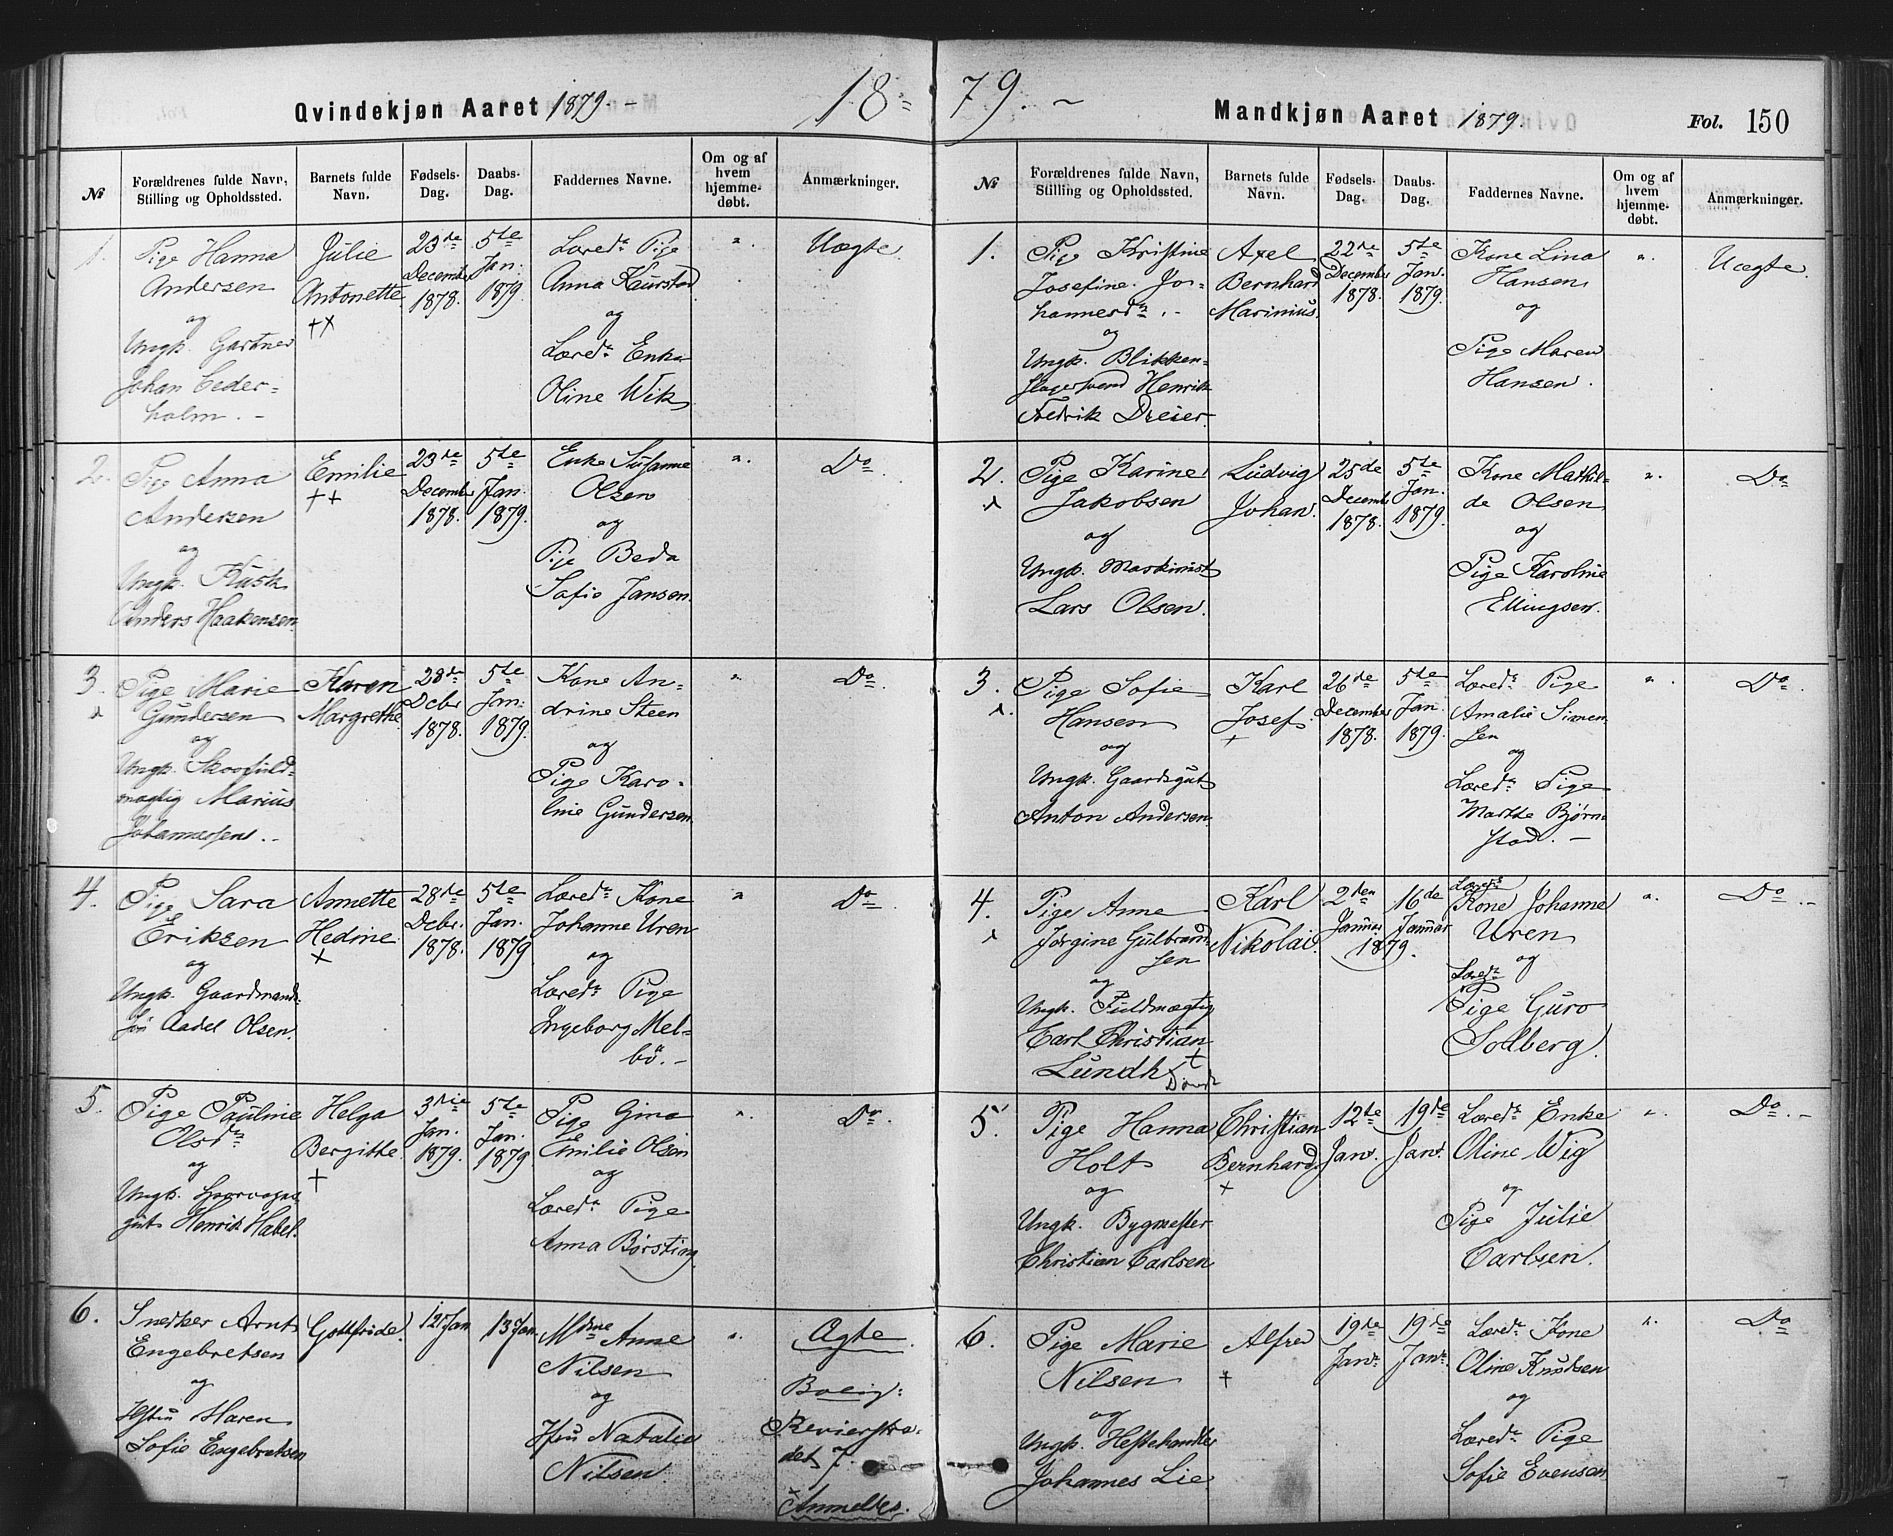 Qvindekjøn Aaret 1879.
18
№
Forældrenes fulde Navn,
Stilling og Opholdssted.
Barnets fulde
Navn.
Fødsels-
Dag.
Daabs-
Dag.
Faddernes Navne.
Om og af
hvem
hjemme-
døbt.
Anmærkninger.
1.
Pige Hanna
Andersen
og
Ungk. Gartner
Johan Ceder-
holm.
Julie
Antonette
23de
Decemb
1878.
5te
Jan.
1879
Lored. Pige
Anna Kaurstad
og
Lœred. Enke
Oline Wik
Uægte
2.
Pige Anna
Andersen
og
Ungk. Kusk
Anders Haakensen
Emilie
23de
Decemb
1878.
5te
Jan.
1879.
Enke Susanne
Olsen
og
Pige Beda
Sofie Jansen.
Do
3.
Pige Marie
Gundersen
og
Ungk. Skoofuld-
mægtig Marius
Johannesens.
Karen
Margrethe
28de
Debr
1878.
5te
Jan.
1879.
Kone An-
drine Steen
og
Pige Karo-
line Gundersen
Do
4.
Pige Sara
Eriksen
og
Ungk. Gaardmand.
Aadel Olsen.
Annette
Hedine
28de
Debr.
1878.
5te
Jan.
1879
Lœred. Kone
Johanne Uren
og
Lœred. Pige
Ingeborg Mel-
bö.
Do
5.
Pige Pauline
Olsdn
og
Ungk. Sporvogns
gut Henrik Habel.
Helga
Bergitte
3die
Jan.
1879.
5te
Jan.
1879
Pige Gina
Emilie Olsen
og
Lœred. Pige
Anna Børsting
Do.
6.
Snedker Arnt
Engebretsen
og
Hstru Maren
Sofie Engebretsen
Gottfride.
12 Jan
13 Jan
Mdme Anne
Nilsen
og
Hstru Natalie
Nilsen
Ægte.
Bolig:
Revierstra-
det 7.
Anmeldes.
79.
Mandkjøn Aaret 1879.
Fol. 150
№
Forældrenes fulde Navn,
Stilling og Opholdssted.
Barnets fulde
Navn.
Fødsels-
Dag.
Daabs-
Dag.
Faddernes Navne.
Om og af
hvem
hjemme-
døbt.
Anmærkninger.
1.
Pige Kristine
Josefine Jo-
hannesdn.
og
Ungk. Blikken-
slagersvend Henrik
Fredrik Dreier
Axel
Bernhard
Marinius.
22de
December
1878.
5te
Jan.
1879.
Kone Lina
Hansen
og
Pige Maren
Hansen.
Uægte.
2.
Pige Karine
Jakobsen
og
Ungk. Maskinist
Lars Olsen.
Ludvig
Johan.
25de
Decemb
1878.
5te
Jan.
1879.
Kone Mathil-
de Olsen
og
Pige Karoline
Ellingsen.
Do
3.
Pige Sofie
Hansen
og
Ungk. Gaardsgut
Anton Andersen
Karl
Josef.
26de
December
1878.
5te
Jan.
1879.
Lœred. Pige
Amalie Simen
sen
og
Lœred. Pige
Marthe Bjørn
stad.
Do
4.
Pige Anne
Jørgine Gulbrand
sen
og
Ungk. Fuldmægtig
Carl Christian
Lundh
Karl
Nikolai
2den
Januar
1879.
16de
Januar
Lœred.
Kone Johanne
Uren
og
Lœred.
Pige Guro
Solberg.
Do
5.
Pige Hanna
Holt
og
Ungk. Bygmester
Christian Carlsen
Christian
Bernhard
12te
Jan.
19de
Jan.
Lœred. Enke
Oline Wig
og
Pige Julie
Carlsen.
Do.
6.
Pige Marie
Nilsen
og
Ungk. Hestehandler
Johannes Lie
Alfred
19de
Jan.
19de
Jan.
Lœred. Kone
Oline Knudsen
og
Lœred. Pige
Sofie Evensen
Do